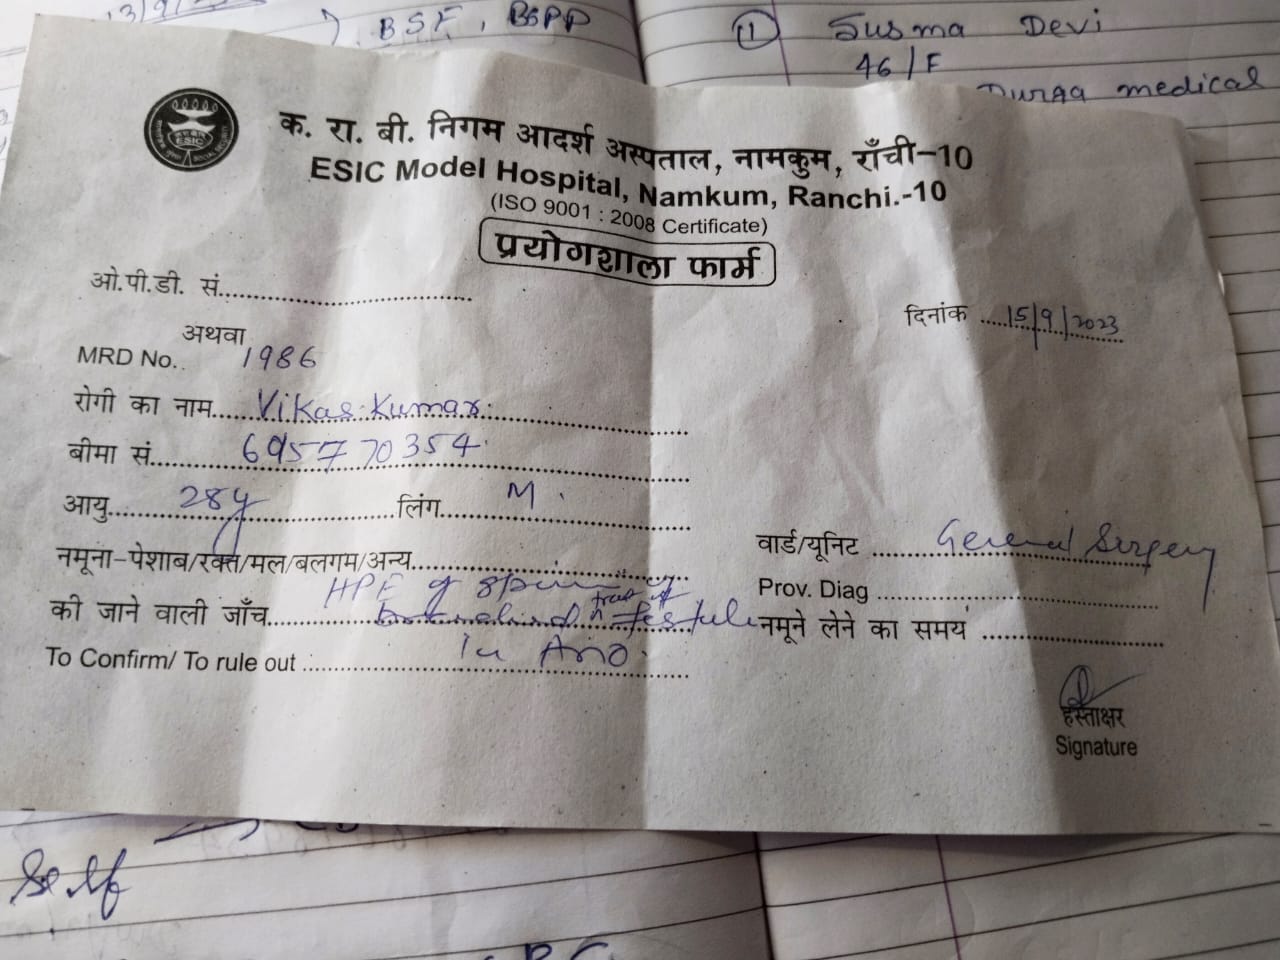 13/9/2
BSF, BSPP
11 Susma Devi
46/F
Durga medical
क. रा. बी. निगम आदर्श अस्पताल, नामकुम, राँची-10
ESIC Model Hospital, Namkum, Ranchi.-10
(ISO 9001 : 2008 Certificate)
प्रयोगशाला फार्म
ESIC
ओ.पी.डी. सं.
दिनांक 15/9/2023
अथवा
MRD No.. 1986
रोगी का नाम Vikas Kumar
बीमा सं. 6957770354
आयु 28y लिंग M
वार्ड/यूनिट General Surgery
नमूना-पेशाब/रक्त/मल/बलगम/अन्य
Prov. Diag
HPE of
की जाने वाली जाँच
नमूने लेने का समय
To Confirm/ To rule out in Ano
हस्ताक्षर
Signature
Self